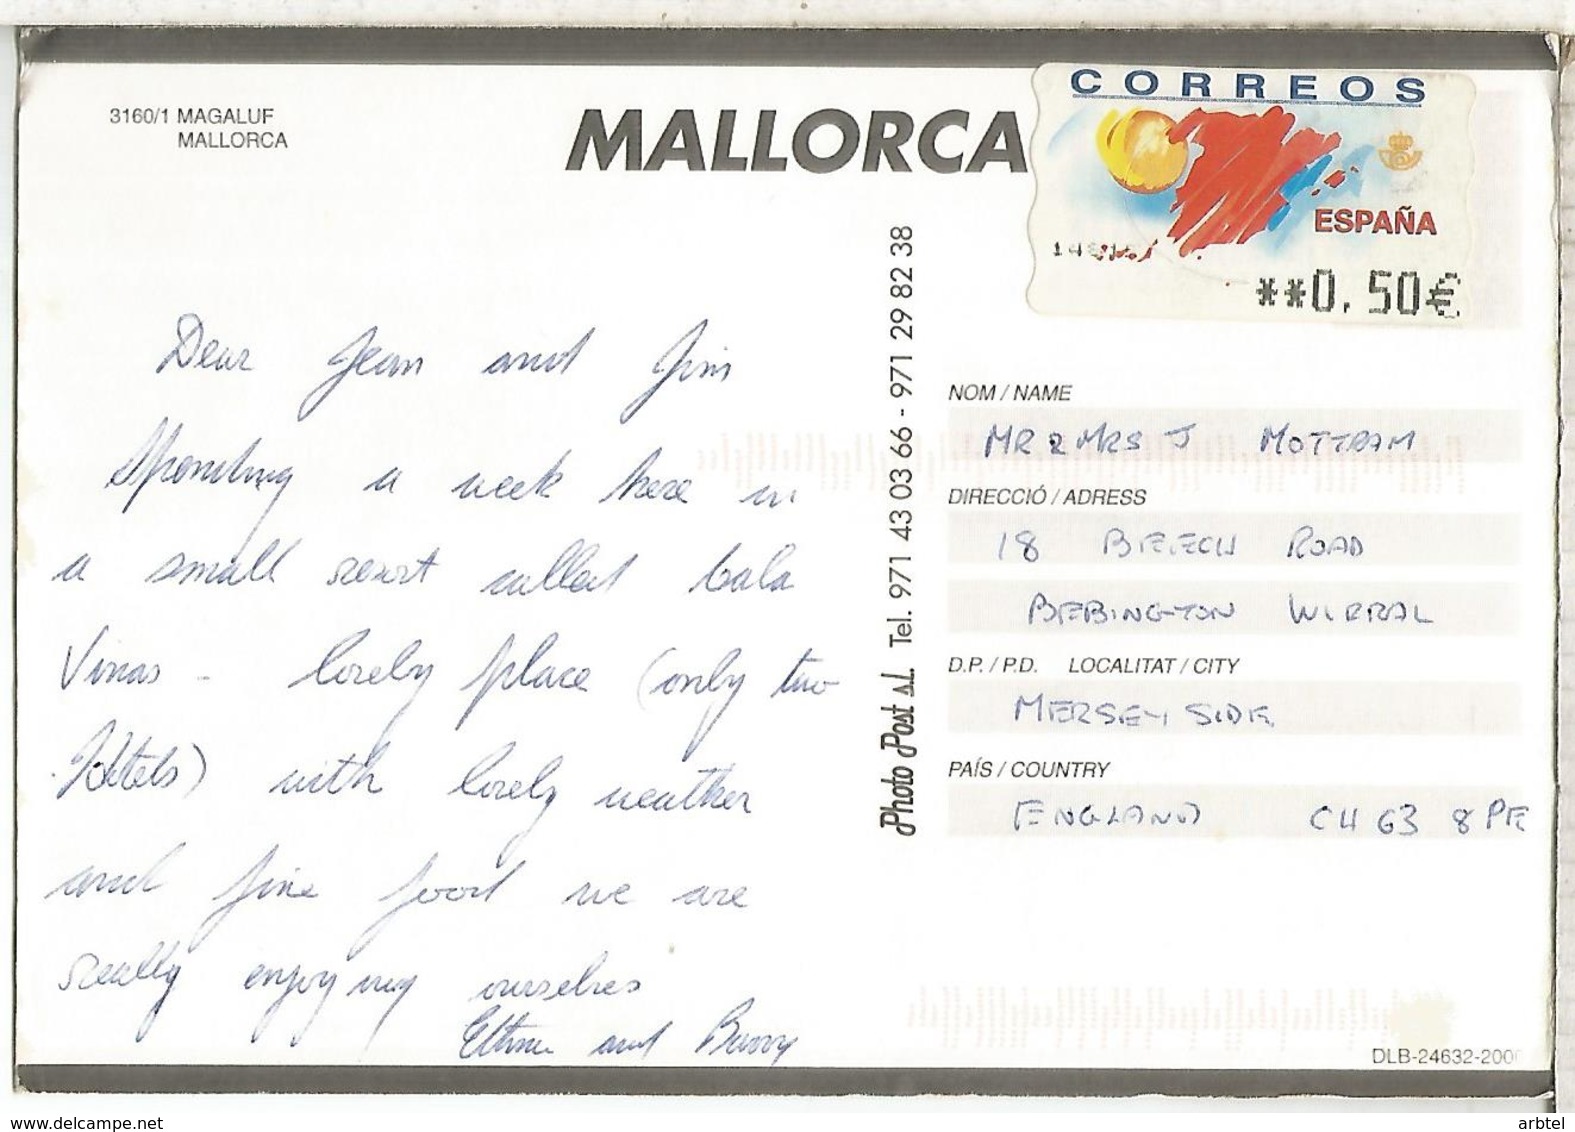 3160/1 MAGALUF
MALLORCA
MALLORCA
CORREOS
ESPAÑA
**0,50€
Dear Jean and Jim
Spending a week here in
a small resort called Cala
Vinas - lovely place (only two
Hotels) with lovely weather
and fine food we are
really enjoying ourselves
and Barry
Photo Post s.l. Tel. 971 43 03 66 - 971 29 82 38
NOM / NAME
MR & MRS J MOTTRAM
DIRECCIÓ / ADRESS
18 BEECH ROAD
BEBINGTON WIRRAL
D.P. / P.D. LOCALITAT / CITY
MERSEYSIDE
PAÍS / COUNTRY
ENGLAND CH63 8PE
DLB-24632-2000
www.delcampe.net
arbtel